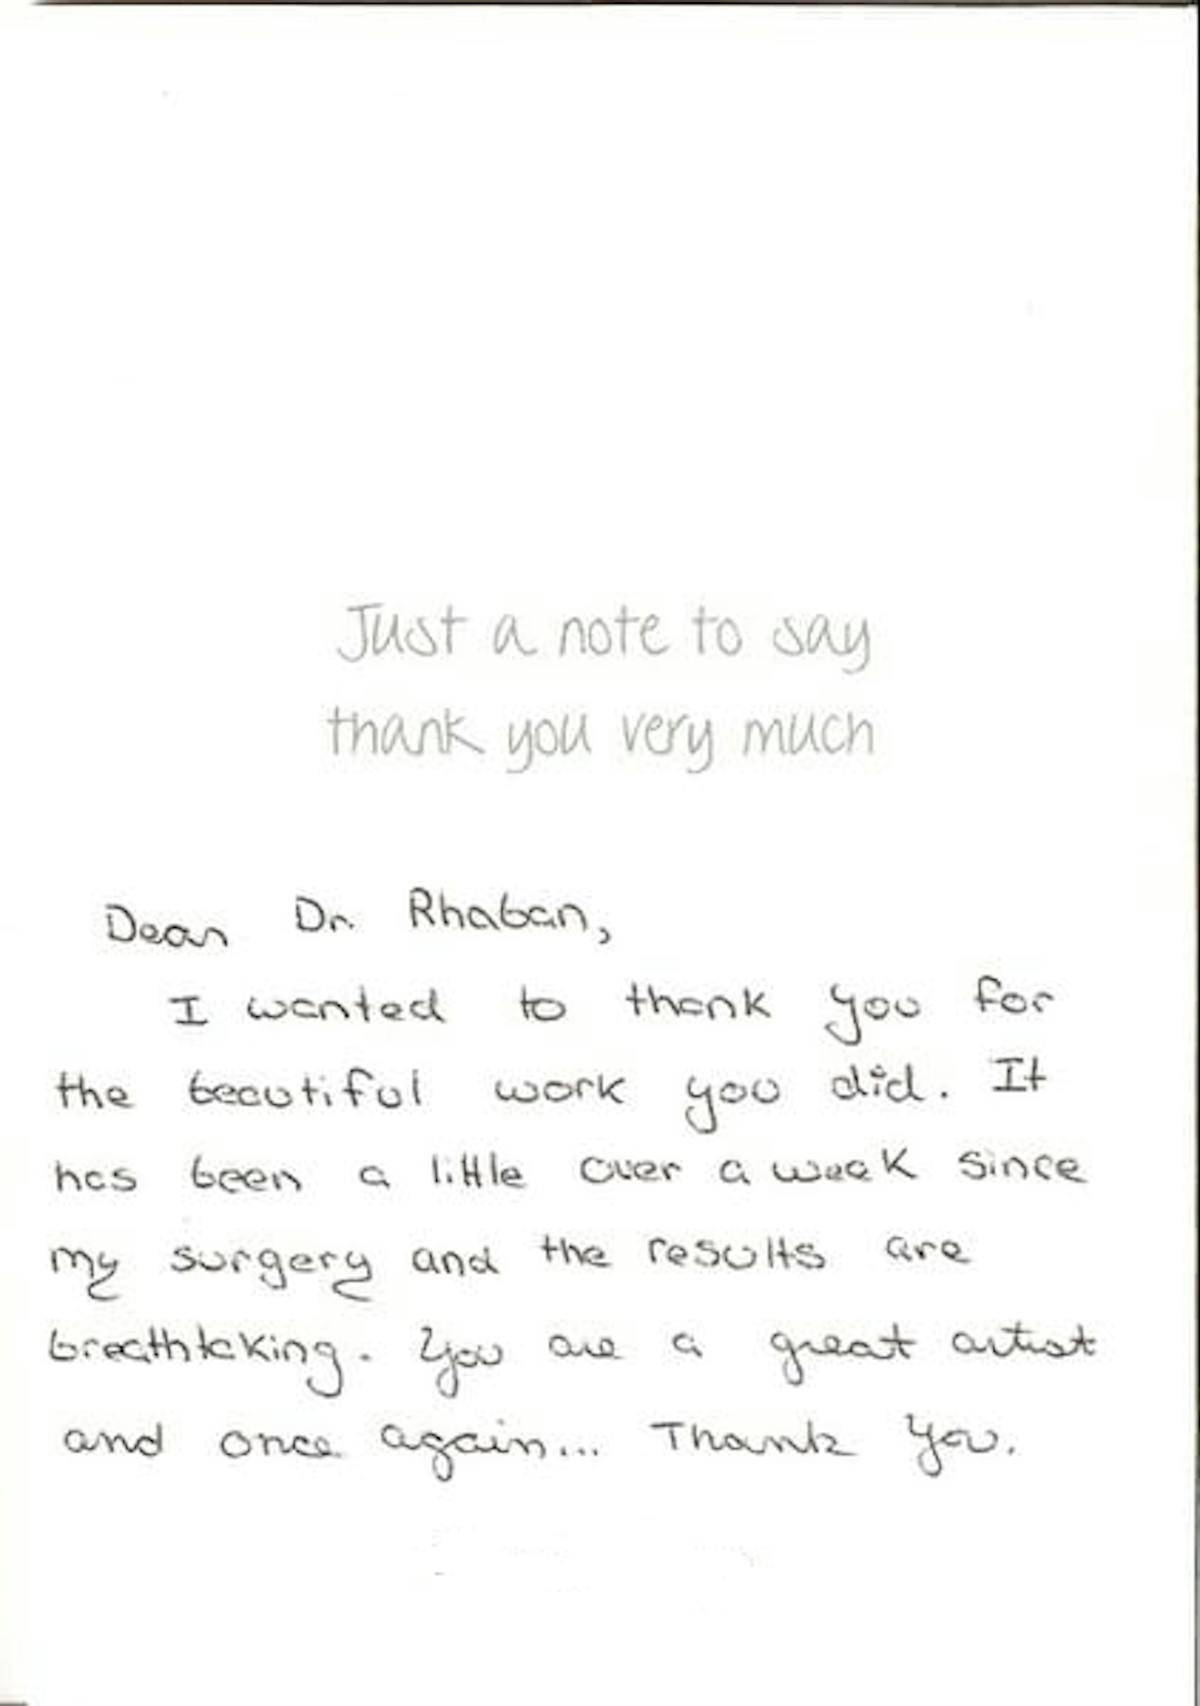 Just a note to say
thank you very much
Dear Dr. Rhaban,
I wanted to thank you for
the beautiful work you did. It
has been a little over a week since
my surgery and the results are
breathtaking. You are a great artist
and once again... Thank You.